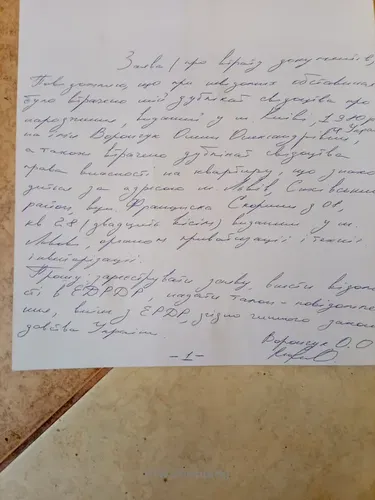 Заява (про втрату документів)
Повідомляю, що при невідомих обставинах
було втрачено мій дублікат свідоцтва про
народження, виданий у м. Києві,
на ім'я Ворончук Олени Олександрівни,
а також втрачено дублікат свідоцтва
права власності на квартиру, що знахо-
диться за адресою м. Львів, Сихівський
район, вул. Франциска Скорини з 01,
кв 28 (двадцять вісім) виданим у м.
Львові, органом приватизації і
інвентаризації.
Прошу: зареєструвати заяву, внести відомос-
ті в ЄРДР, надати талон - повідомлен-
ня, витяг з ЄРДР, згідно чинного законо-
давства України.
Ворончук О.О
-1-